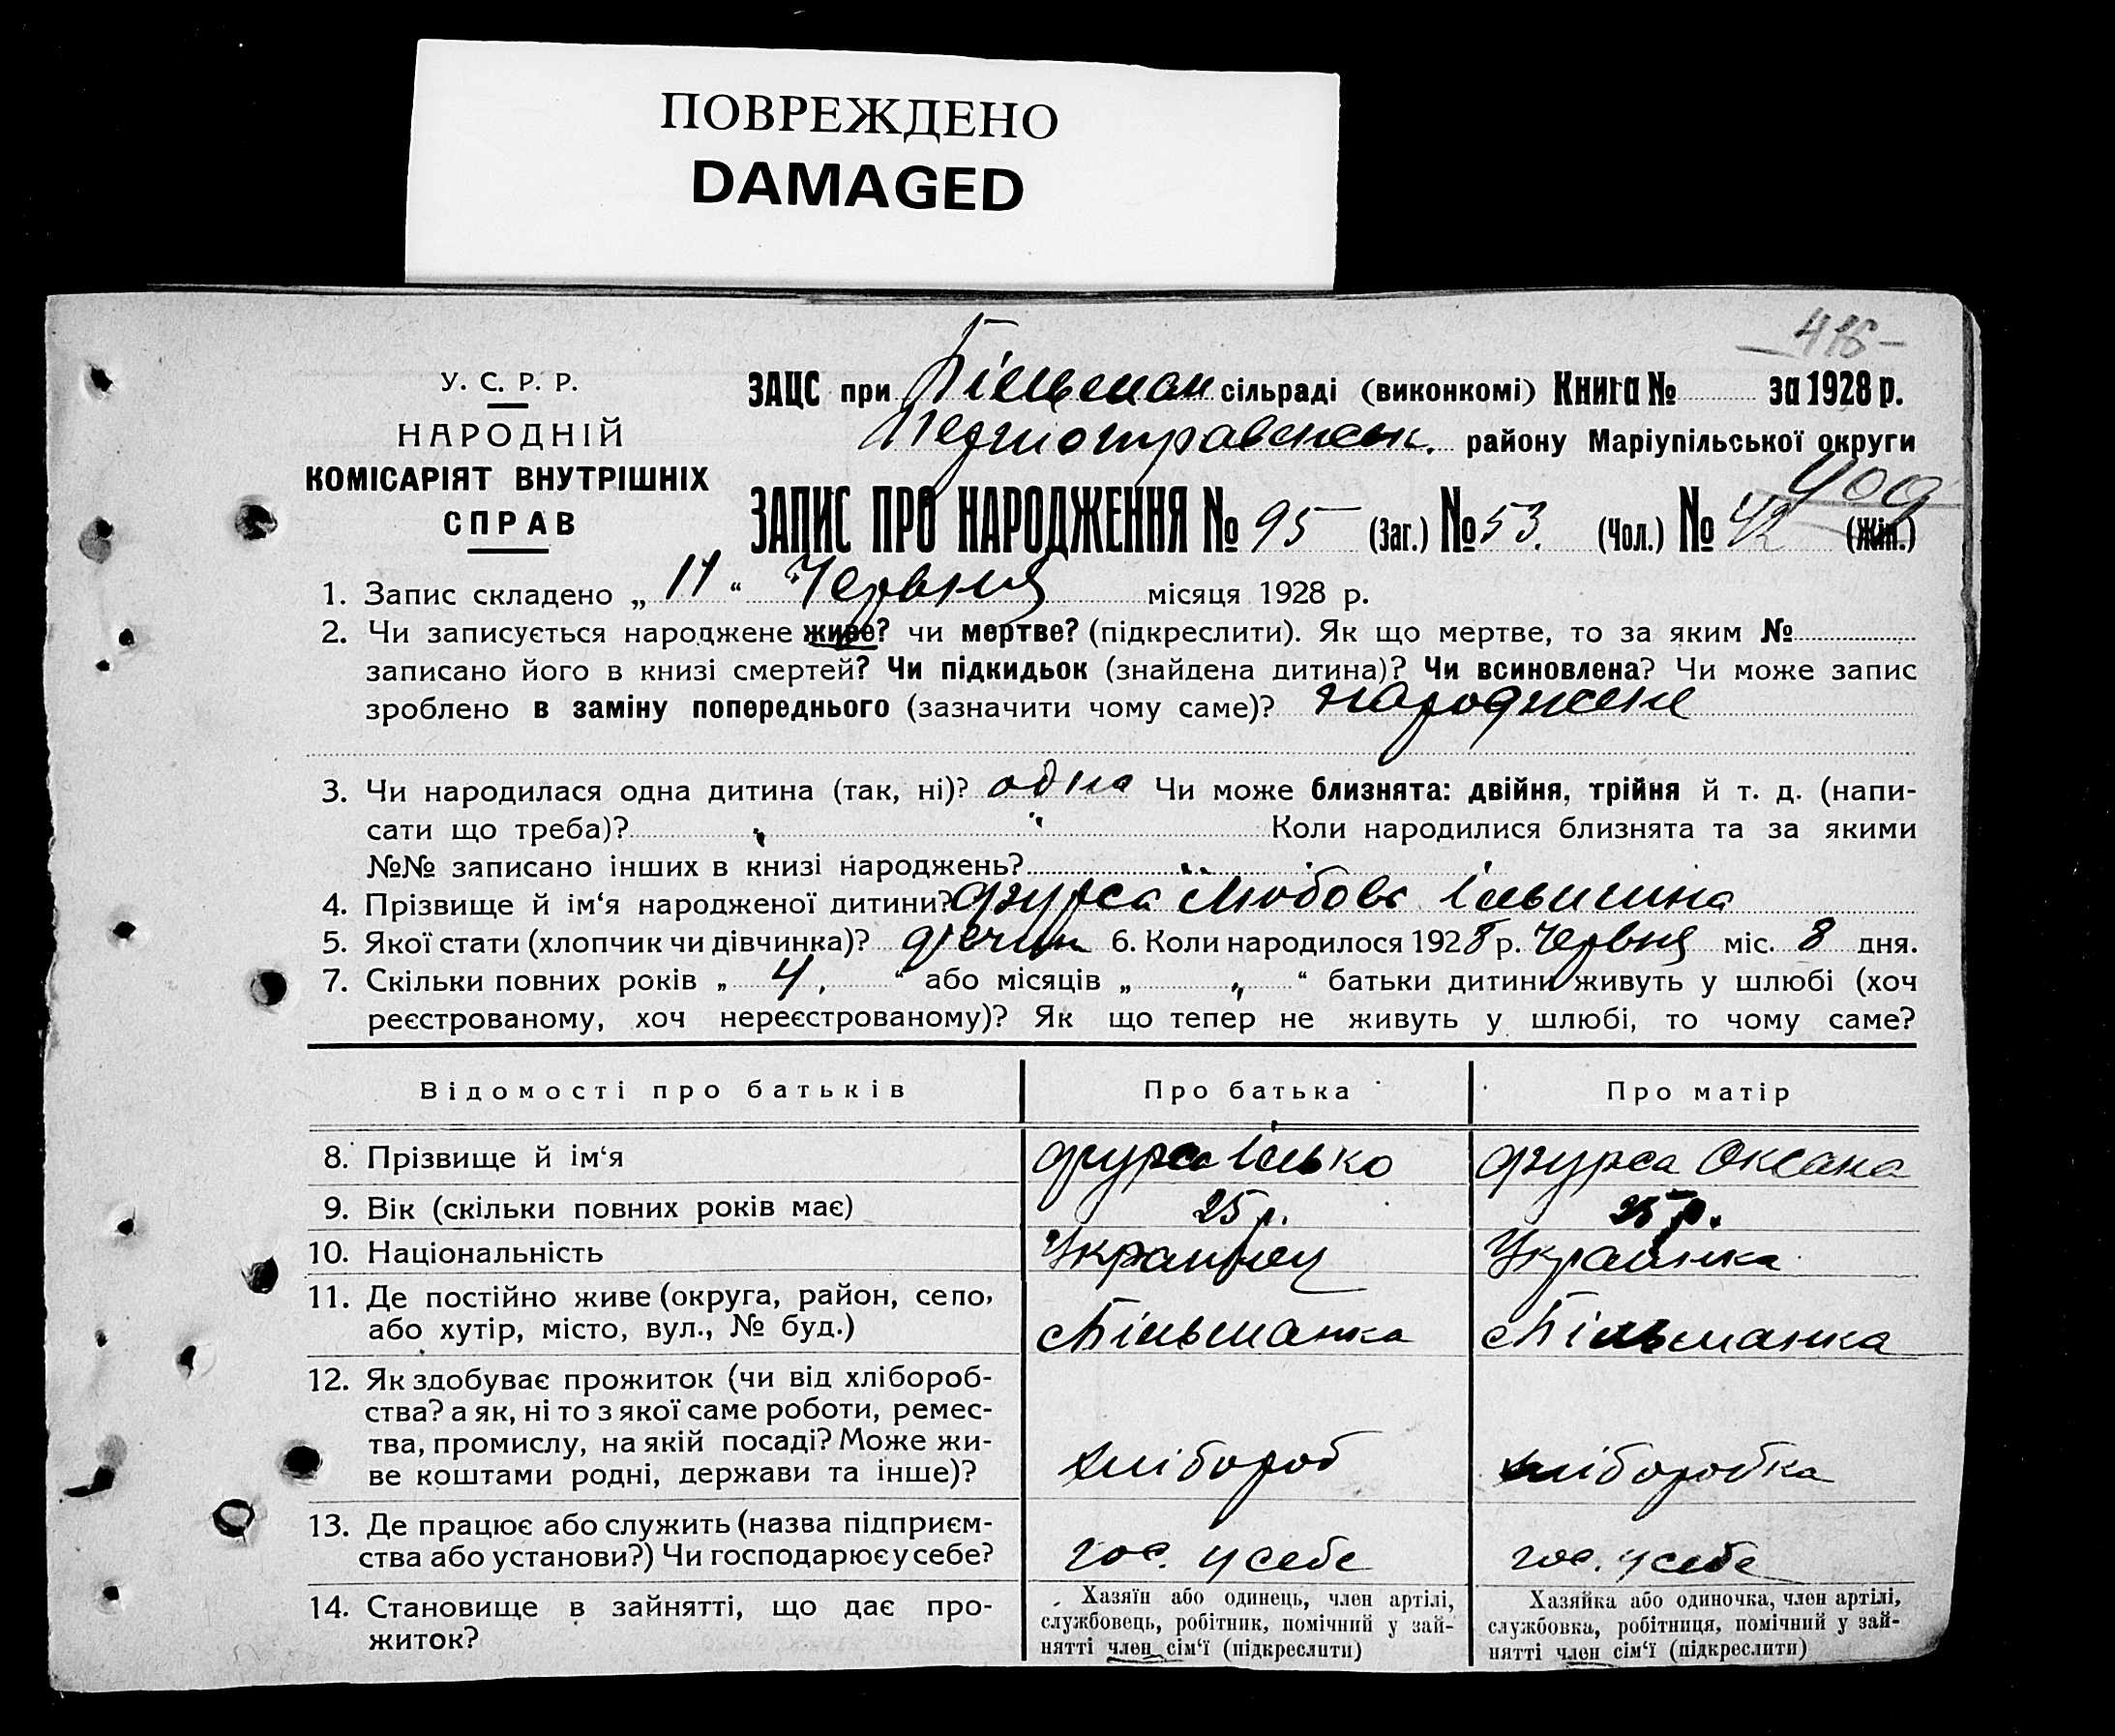 ПОВРЕЖДЕНО
DAMAGED
У. С. Р. Р.
НАРОДНІЙ
КОМІСАРІЯТ ВНУТРІШНІХ
СПРАВ
ЗАЦС при Більман сільраді (виконкомі) Книга № за 1928 р.
району Маріупільської округи
409
ЗАПИС ПРО НАРОДЖЕННЯ № 95 (Заг.) № 53. (Чол.) № 42 (Жін.)
1. Запис складено „ 11 “ Червня місяця 1928 р.
2. Чи записується народжене живе? чи мертве? (підкреслити). Як що мертве, то за яким №
записано його в книзі смертей? Чи підкидьок (знайдена дитина)? Чи всиновлена? Чи може запис
зроблено в заміну попереднього (зазначити чому саме)? народжене
3. Чи народилася одна дитина (так, ні)? одна Чи може близнята: двійня, трійня й т. д. (напи-
сати що треба)? Коли народилися близнята та за якими
№№ записано інших в книзі народжень?
4. Прізвище й ім‘я народженої дитини? Фурса Любовь Ільвишна
5. Якої стати (хлопчик чи дівчинка)? 6. Коли народилося 1928 р. Червня міс. 8 дня.
7. Скільки повних років „ 4, “ або місяців „ „ “ батьки дитини живуть у шлюбі (хоч
реєстрованому, хоч нереєстрованому)? Як що тепер не живуть у шлюбі, то чому саме?
Відомості про батьків Про батька Про матір
8. Прізвище й ім‘я Фурса Ілько Фурса Оксана
9. Вік (скільки повних років має) 25 р. 25 р.
10. Національність Українец Українка
11. Де постійно живе (округа, район, село,
або хутір, місто, вул., № буд.) Більманка Більманка
12. Як здобуває прожиток (чи від хлібороб-
ства? а як, ні то з якої саме роботи, ремес-
тва, промислу, на якій посаді? Може жи-
ве коштами родні, держави та інше)? хлібороб хліборобка
13. Де працює або служить (назва підприєм-
ства або установи?) Чи господарює у себе? гос. у себе гос. у себе
14. Становище в зайнятті, що дає про-
житок?
Хазяїн або одинець, член артілі,
службовець, робітник, помічний у зай-
нятті член сім‘ї (підкреслити)
Хазяйка або одиночка, член артілі,
службовка, робітниця, помічний у зай-
нятті член сім‘ї (підкреслити)